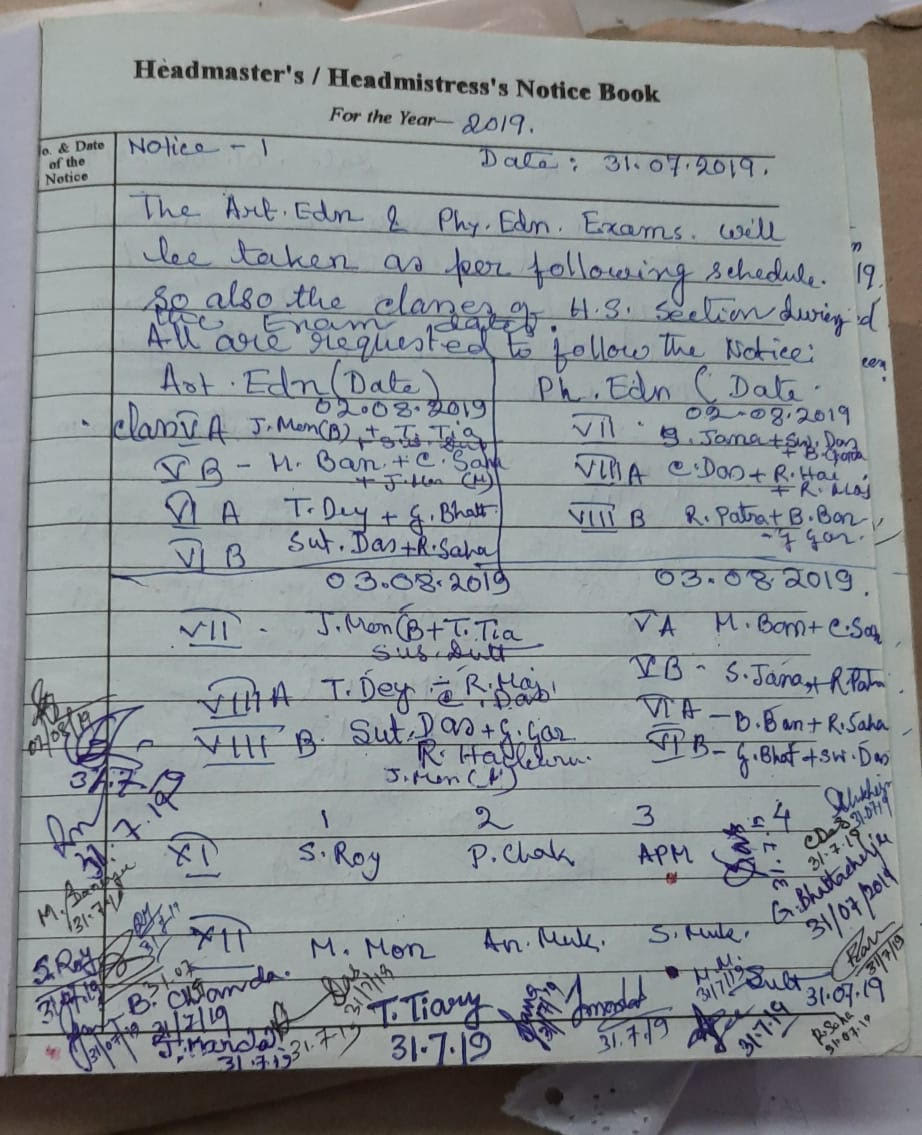 Headmaster's / Headmistress's Notice Book
For the Year— 2019.
o. & Date
of the
Notice
Notice - 1
Date: 31.07.2019.
The Art. Edn & Phy. Edn. Exams. will
be taken as per following schedule.
So also the classes of H.S. Section during
the Exam dates.
All are requested to follow the Notice:
Art. Edn (Date)
Ph. Edn (Date
02.08.2019
02.08.2019
class V A J. Mon(B) + T. Tia
V B - M. Ban. + C. Saha
+ J. Mon (M)
VI A T. Dey + G. Bhatt
VI B Sut. Das + R. Saha
VII. S. Jana + Sw. Das
VIII A C. Das + R. Hal
+ R. Maj
VIII B R. Patra + B. Ban
- G Gar.
03.08.2019
03.08.2019.
VII - J. Mon (B + T. Tia
Sus. Dutt
VIII A T. Dey - R. Maj
C. Das
VIII B. Sut. Das + G. Gar
J. Mon (M)
V A M. Ban + C. Sah
V B - S. Jana + R Patra
VI A - B. Ban + R. Saha
VI B - G. Bhat + Sw. Das
1 2 3 4
XI S. Roy P. Chak APM
XII M. Mon An. Muk. S. Muk.
02/08/19
31.7.19
31.7.19
M. Banerjee
31.7.19
S. Roy
31.07.19
31/07/19
B. Chanda.
31/7/19
S. Mandal
31.7.19
31.7.19
31/7/19
T. Tiary
31.7.19
31/7/19
31.7.19
M.M.
31/7/19
31.7.19
31.07.19
C Das
31.7.19
31.07.19
G. Bhattacherjee
31/07/2019
31/7/19
R. Saha
31.07.19